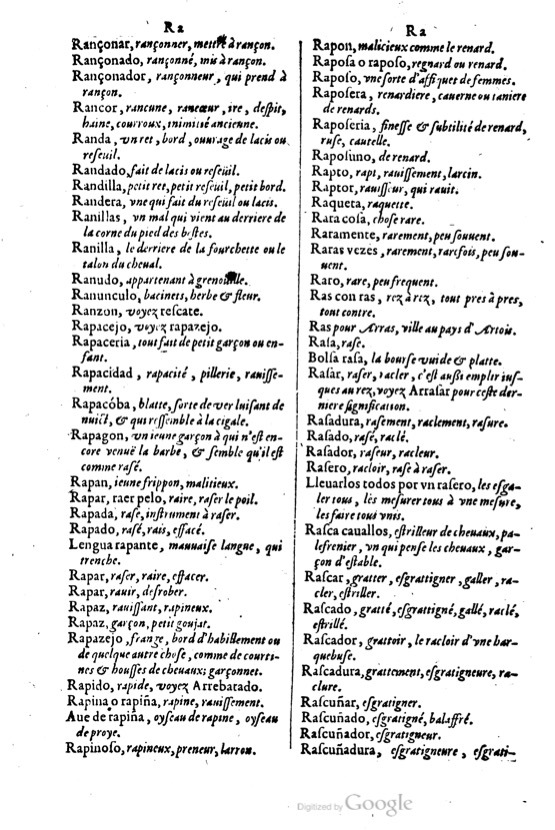 Ra
Rançonar, rançonner, mettre à rançon.
Rançonado, rançonné, mis à rançon.
Rançonador, rançonneur, qui prend à
rançon.
Rancor, rancune, rancœur, ire, despit,
haine, courroux, inimitié ancienne.
Randa, vn ret, bord, ouurage de lacis ou
reseuil.
Randado, fait de lacis ou reseüil.
Randilla, petit ret, petit reseuil, petit bord.
Randera, vne qui fait du reseüil ou lacis.
Ranillas, vn mal qui vient au derriere de
la corne du pied des bestes.
Ranilla, le derriere de la fourchette ou le
talon du cheual.
Ranudo, appartenant à grenouille.
Ranunculo, bacinets, herbe & fleur.
Ranzon, voyez rescate.
Rapacejo, voyez rapazejo.
Rapaceria, tout fait de petit garçon ou en-
fant.
Rapacidad, rapacité, pillerie, rauisse-
ment.
Rapacóba, blatte, sorte de ver luisant de
nuict, & qui ressemble à la cigale.
Rapagon, vn ieune garçon à qui n'est en-
core venuë la barbe, & semble qu'il est
comme rasé.
Rapan, ieune frippon, malitieux.
Rapar, raer pelo, raire, raser le poil.
Rapada, rasé, instrument à raser.
Rapado, rasé, rais, effacé.
Lengua rapante, mauuaise langue, qui
trenche.
Rapar, raser, raire, effacer.
Rapar, rauir, desrober.
Rapaz, rauissant, rapineux.
Rapaz, garçon, petit goujat.
Rapazejo, frange, bord d'habillement ou
de quelque autre chose, comme de courti-
nes & housses de cheuaux; garçonnet.
Rapido, rapide, voyez Arrebatado.
Rapina o rapiña, rapine, rauissement.
Aue de rapiña, oyseau de rapine, oyseau
de proye.
Rapinoso, rapineux, preneur, larron.
Ra
Rapon, malicieux comme le renard.
Raposa o raposo, regnard ou renard.
Raposo, vne sorte d'affiquet de femmes.
Raposera, renardiere, cauerne ou taniere
de renards.
Raposeria, finesse & subtilité de renard,
ruse, cautelle.
Raposuno, de renard.
Rapto, rapt, rauissement, larcin.
Raptor, rauisseur, qui rauit.
Raqueta, raquette.
Rara cosa, chose rare.
Raramente, rarement, peu souuent.
Raras vezes, rarement, rarefois, peu sou-
uent.
Raro, rare, peu frequent.
Ras con ras, rez à rez, tout pres à pres,
tout contre.
Ras pour Arras, ville au pays d'Artois.
Rasa, rase.
Bolsa rasa, la bourse vuide & platte.
Rasar, raser, racler, c'est aussi emplir ius-
ques au rez, voyez Arrasar pour ceste der-
niere signification.
Rasadura, rasement, raclement, rasure.
Rasado, rasé, raclé.
Rasador, raseur, racleur.
Rasero, racloir, rase à raser.
Lleuarlos todos por vn rasero, les esga-
ler tous, les mesurer tous à vne mesure,
les faire tous vnis.
Rasca cauallos, estrilleur de cheuaux, pa-
lefrenier, vn qui pense les cheuaux, gar-
çon d'estable.
Rascar, gratter, esgratigner, galler, ra-
cler, estriller.
Rascado, gratté, esgratigné, gallé, raclé,
estrillé.
Rascador, grattoir, le racloir d'vne har-
quebuse.
Rascadura, grattement, esgratigneure, ra-
clure.
Rascuñar, esgratigner.
Rascuñado, esgratigné, balaffré.
Rascuñador, esgratigneur.
Rascuñadura, esgratigneure, esgrati-
Digitized by Google